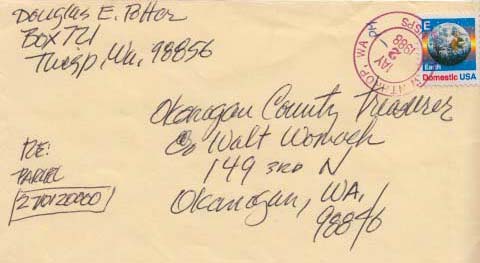 Douglas E. Potter
Box 721
Twisp, Wa. 98856
WINTHROP, WA
MAY
2
1988
USPS
E
Earth
Domestic USA
Okanogan County Treasurer
c/o Walt Womack
149 3RD N
Okanogan, WA.
98846
RE:
PARCEL